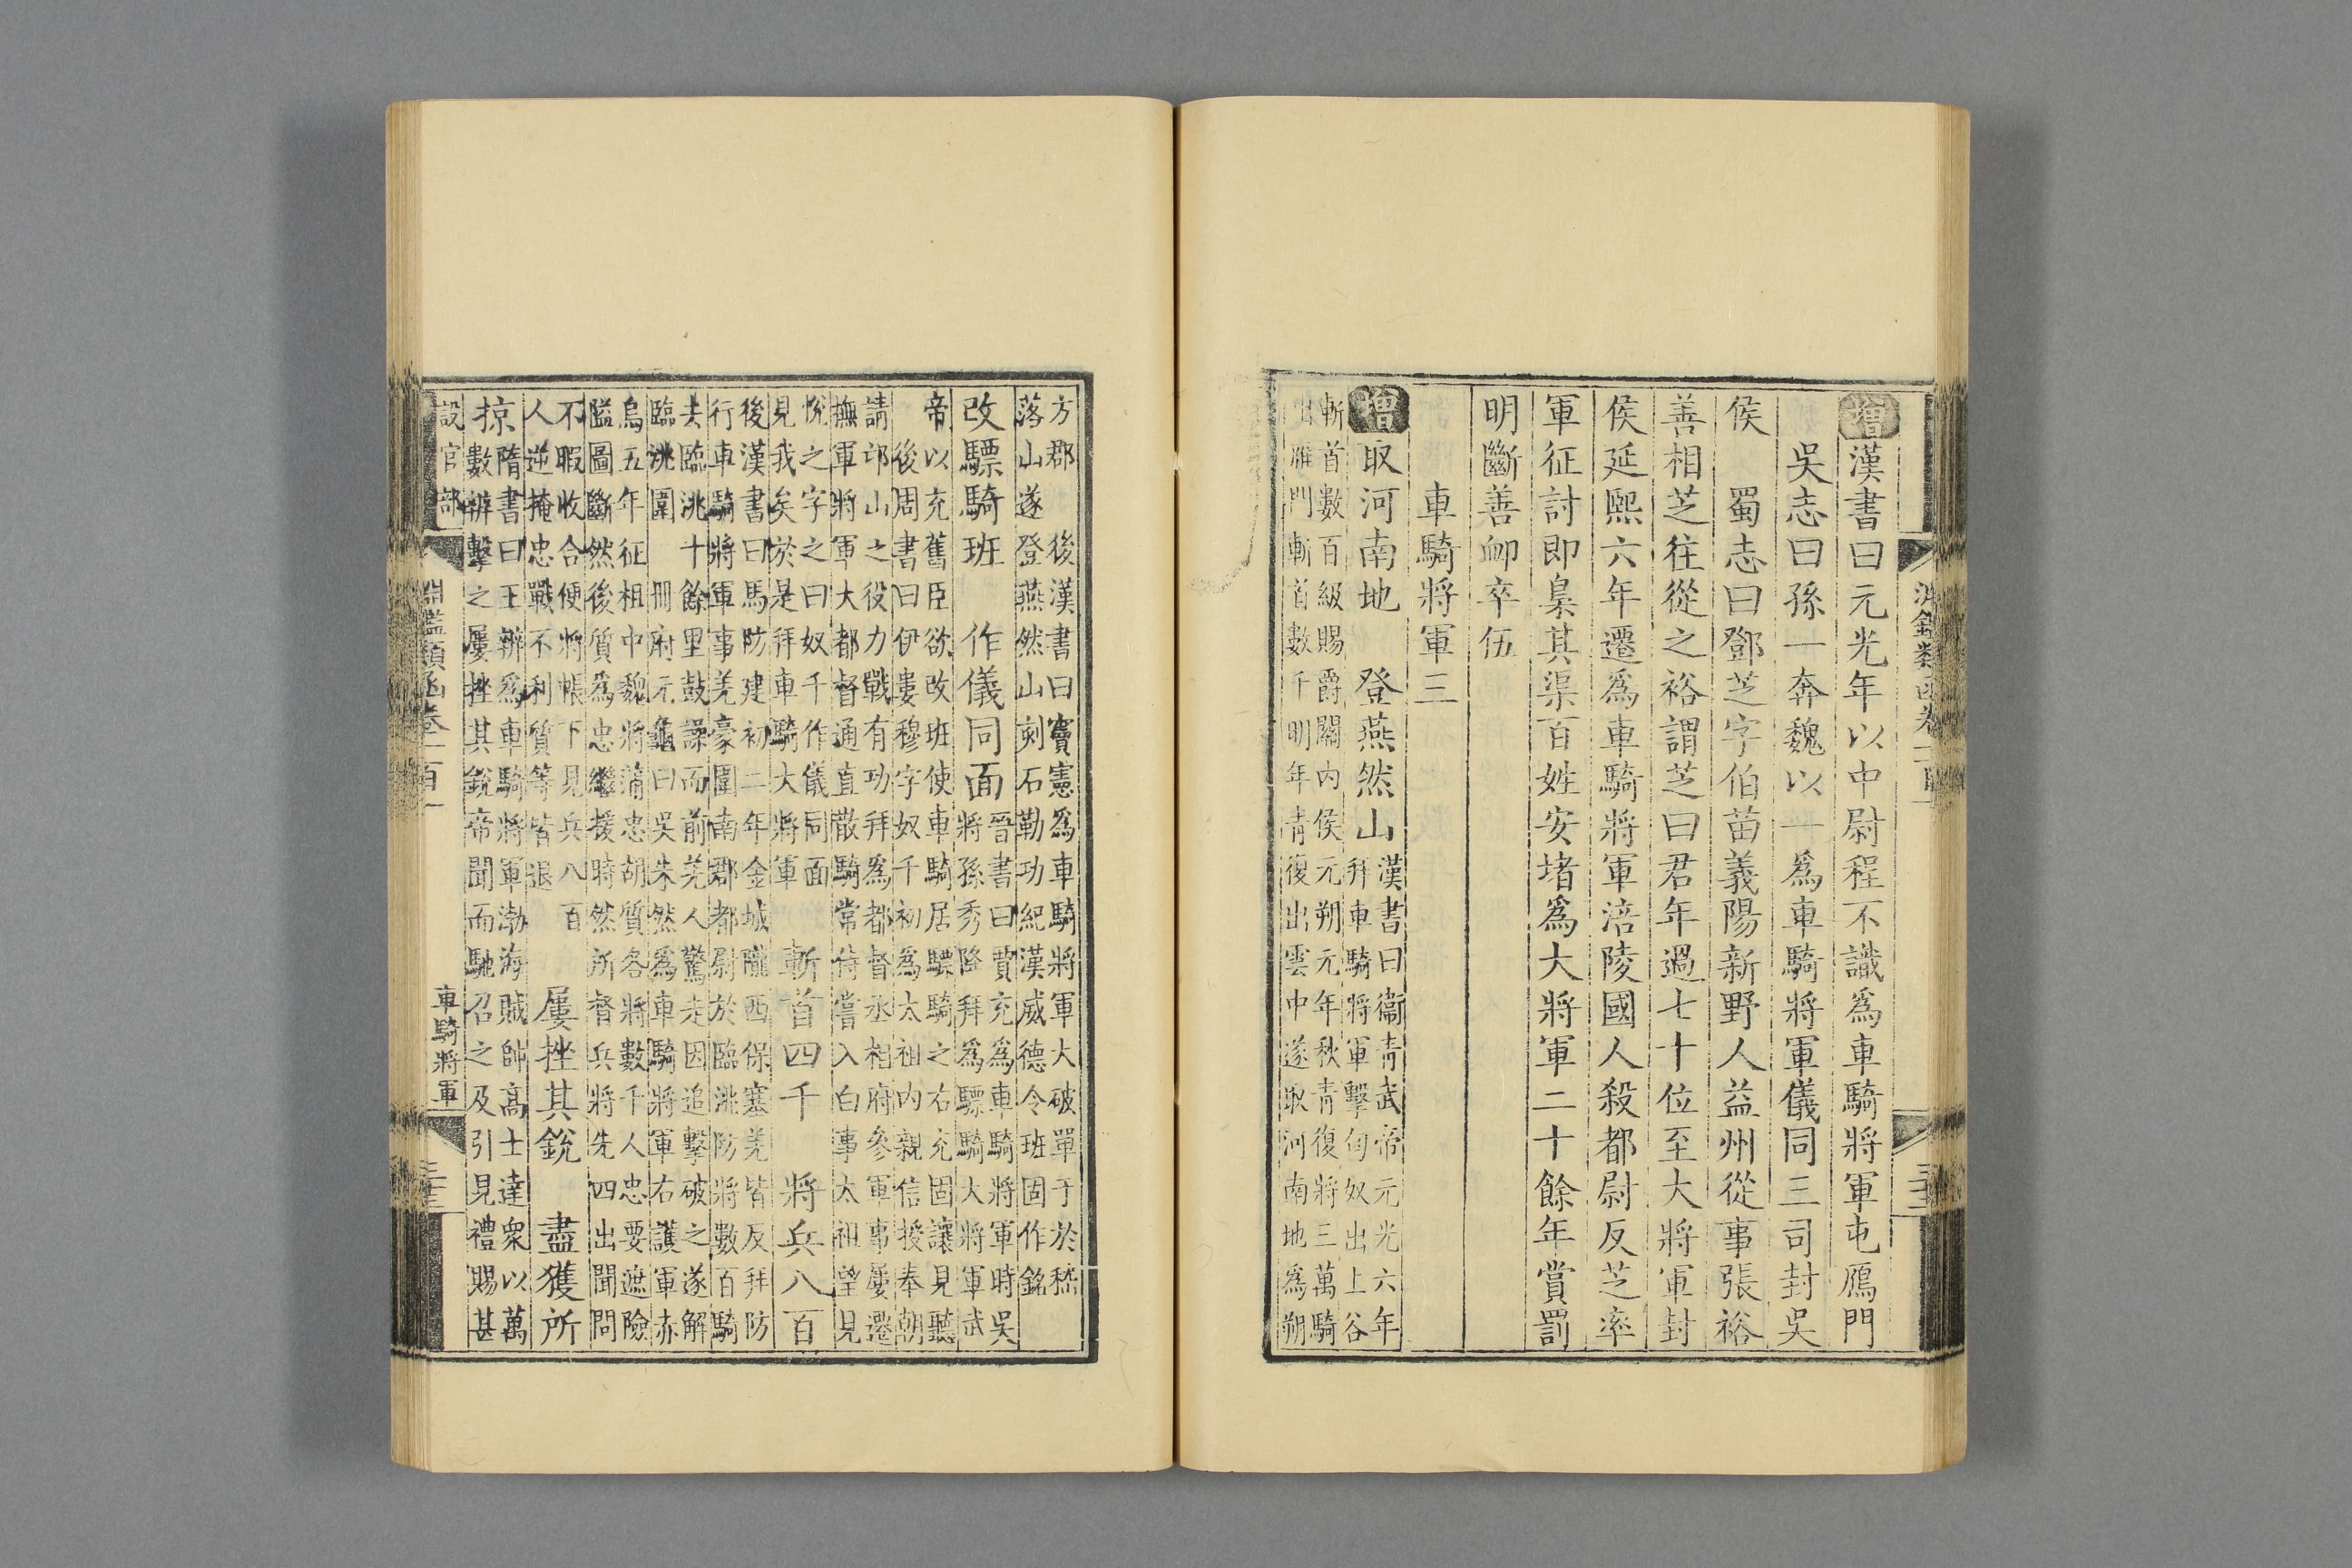 增漢書曰元光年以中尉程不識爲車騎將軍屯鴈門
吳志曰孫一奔魏以一爲車騎將軍儀同三司封吳
侯 蜀志曰鄧芝字伯苗義陽新野人益州從事張裕
善相芝往從之裕謂芝曰君年過七十位至大將軍封
侯延熙六年遷爲車騎將軍涪陵國人殺都尉反芝率
軍征討即梟其渠百姓安堵爲大將軍二十餘年賞罰
明斷善卹卒伍
車騎將軍三
增取河南地 登燕然山
漢書曰衞青武帝元光六年
拜車騎將軍擊匈奴出上谷
斬首數百級賜爵關內侯元朔元年秋青復將三萬騎
出雁門斬首數千明年青復出雲中遂取河南地爲朔
方郡 後漢書曰竇憲爲車騎將軍大破單于於嵇
落山遂登燕然山刻石勒功紀漢威德令班固作銘
改驃騎班 作儀同面
晉書曰賈充爲車騎將軍時吳
將孫秀降拜爲驃騎大將軍武
帝以充舊臣欲改班使車騎居驃騎之右充固讓見聽
後周書曰伊婁穆字奴千初爲太祖內親信授奉朝
請邙山之役力戰有功拜爲都督丞相府參軍事屢遷
撫軍將軍大都督通直散騎常侍嘗入白事太祖望見
悅之字之曰奴千作儀同面
見我矣於是拜車騎大將軍
斬首四千 將兵八百
後漢書曰馬防建初二年金城隴西保塞羌皆反拜防
行車騎將軍事羌豪圍南郡都尉於臨洮防將數百騎
去臨洮十餘里鼓譟而前羌人驚走因追擊破之遂解
臨洮圍 冊府元龜曰吳朱然爲車騎將軍右護軍赤
烏五年征柤中魏將蒲忠胡質各將數千人忠要遮險
隘圖斷然後質爲忠繼援時然所督兵將先四出聞問
不暇收合便將帳下見兵八百
人逆掩忠戰不利質等皆退
屢挫其銳 盡獲所
掠
隋書曰王辨爲車騎將軍渤海賊帥高士達衆以萬
數辨擊之屢挫其銳帝聞而馳召之及引見禮賜甚
設官部
淵鑑類函卷一百一
車騎將軍